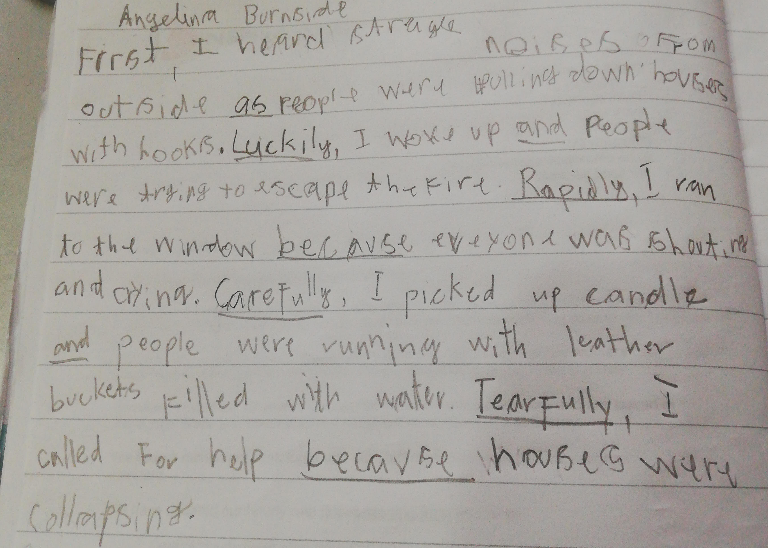 Angelina Burnside
First, I heard stragle noises from
outside as people were pulling down houses
with hooks. Luckily, I woke up and people
were trying to escape the fire. Rapidly, I ran
to the window because eveyone was shouting
and crying. Carefully, I picked up candle
and people were running with leather
buckets filled with water. Tearfully, I
called for help because houses were
collapsing.